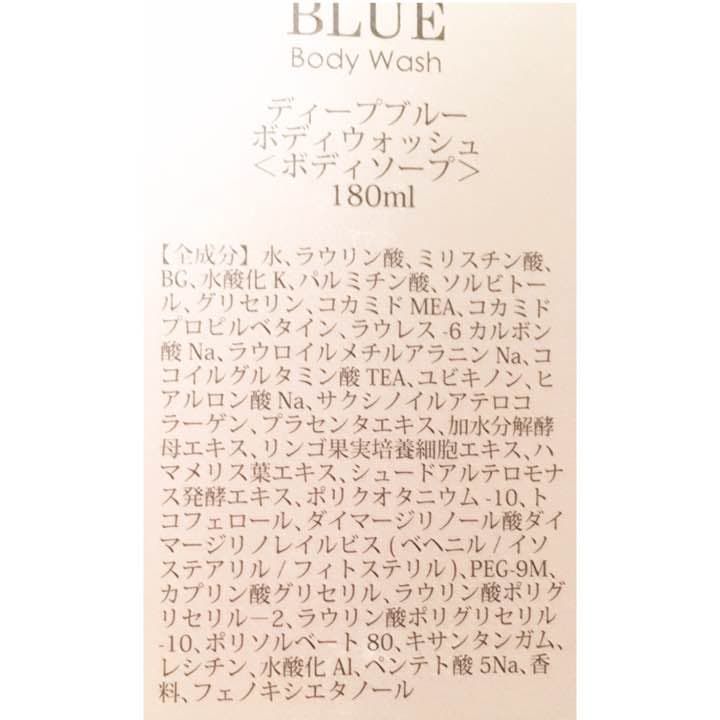 BLUE
Body Wash
ディープブルー
ボディウォッシュ
＜ボディソープ＞
180ml
【全成分】水、ラウリン酸、ミリスチン酸、
BG、水酸化K、パルミチン酸、ソルビトー
ル、グリセリン、コカミドMEA、コカミド
プロピルベタイン、ラウレス-6カルボン
酸Na、ラウロイルメチルアラニンNa、コ
コイルグルタミン酸TEA、ユビキノン、ヒ
アルロン酸Na、サクシノイルアテロコ
ラーゲン、プラセンタエキス、加水分解酵
母エキス、リンゴ果実培養細胞エキス、ハ
マメリス葉エキス、シュードアルテロモナ
ス発酵エキス、ポリクオタニウム-10、ト
コフェロール、ダイマージリノール酸ダイ
マージリノレイルビス(ベヘニル/イソ
ステアリル/フィトステリル)、PEG-9M、
カプリン酸グリセリル、ラウリン酸ポリグ
リセリル－2、ラウリン酸ポリグリセリル
-10、ポリソルベート80、キサンタンガム、
レシチン、水酸化Al、ペンテト酸5Na、香
料、フェノキシエタノール